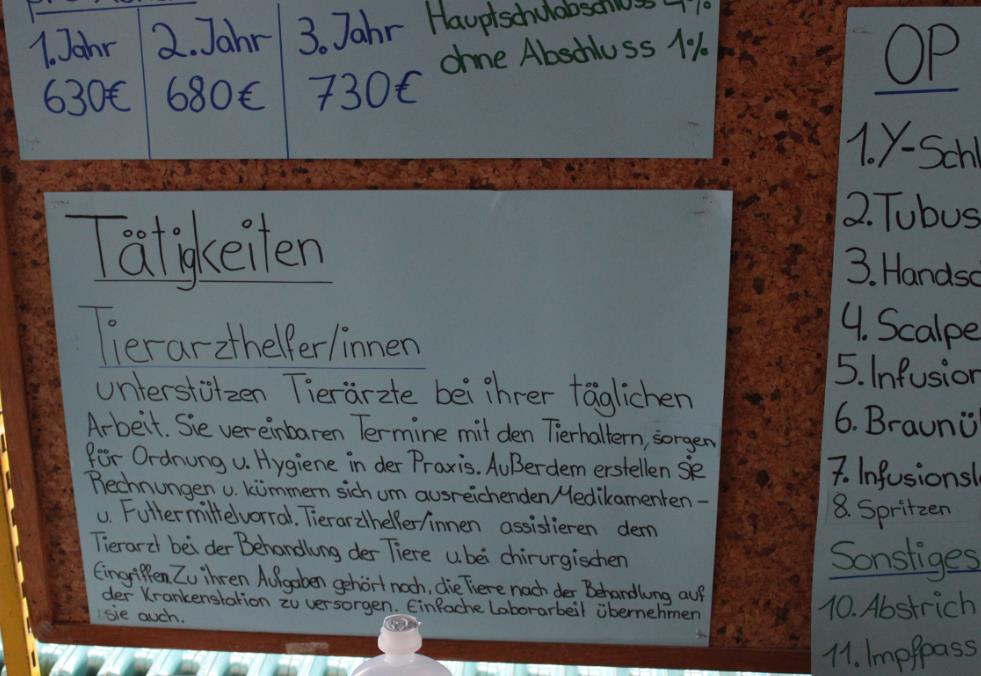 1. Jahr 2. Jahr 3. Jahr
630€ 680€ 730€
Hauptschulabschluss 4%
ohne Abschluss 1%
Tätigkeiten
Tierarzthelfer/innen
unterstützen Tierärzte bei ihrer täglichen
Arbeit. Sie vereinbaren Termine mit den Tierhaltern, sorgen
für Ordnung u. Hygiene in der Praxis. Außerdem erstellen sie
Rechnungen u. kümmern sich um ausreichenden Medikamenten-
u. Futtermittelvorrat. Tierarzthelfer/innen assistieren dem
Tierarzt bei der Behandlung der Tiere u. bei chirurgischen
Eingriffen. Zu ihren Aufgaben gehört noch, die Tiere nach der Behandlung auf
der Krankenstation zu versorgen. Einfache Laborarbeit übernehmen
sie auch.
OP
1. Y-Schl
2. Tubus
3. Handsc
4. Scalpe
5. Infusion
6. Braunü
7. Infusionsl
8. Spritzen
Sonstiges
10. Abstrich
11. Impfpass